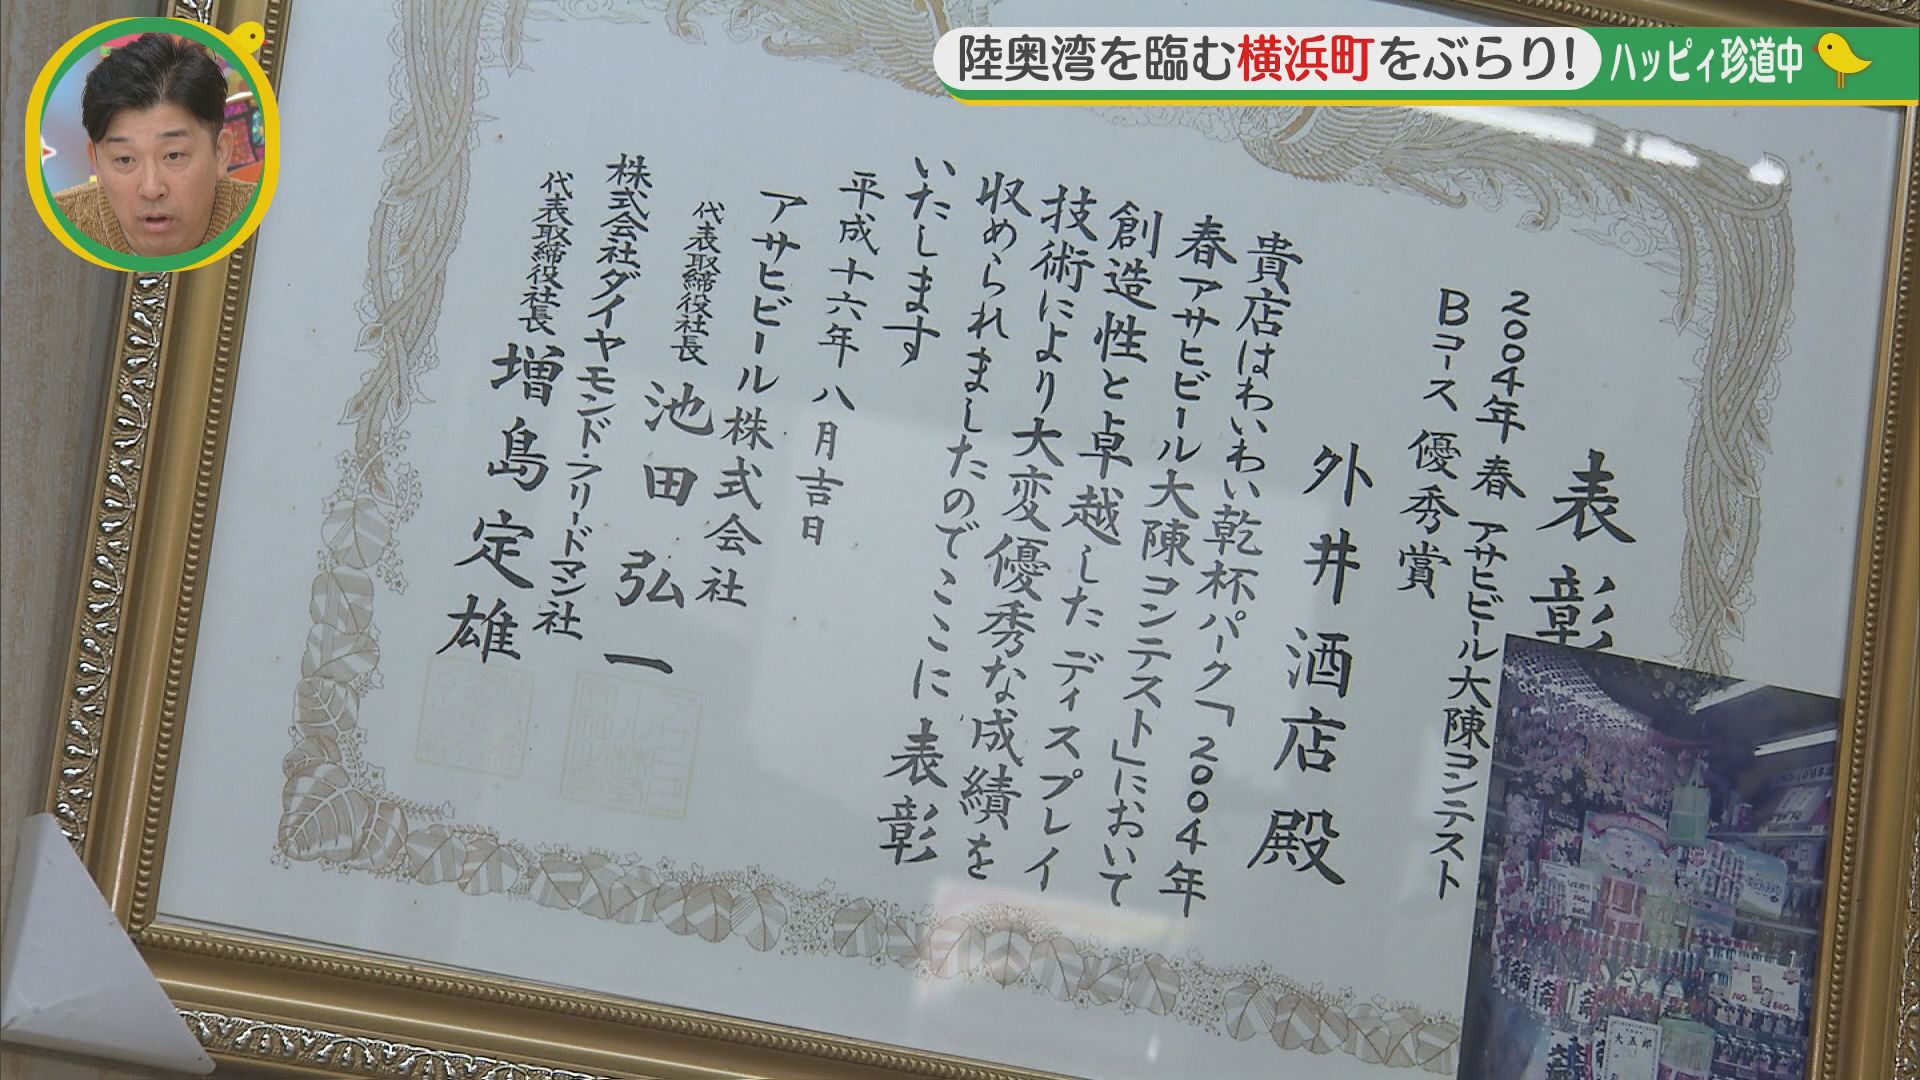 陸奥湾を臨む横浜町をぶらり!
ハッピィ珍道中
表彰
2004年 春 アサヒビール大陳コンテスト
Bコース 優秀賞
外井酒店殿
貴店はわいわい乾杯パーク「2004年
春アサヒビール大陳コンテスト」において
創造性と卓越したディスプレイ
技術により大変優秀な成績を
収められましたのでここに表彰
いたします
平成十六年八月吉日
アサヒビール株式会社
代表取締役社長 池田弘一
株式会社ダイヤモンド・フリードマン社
代表取締役社長 増島定雄
大五郎